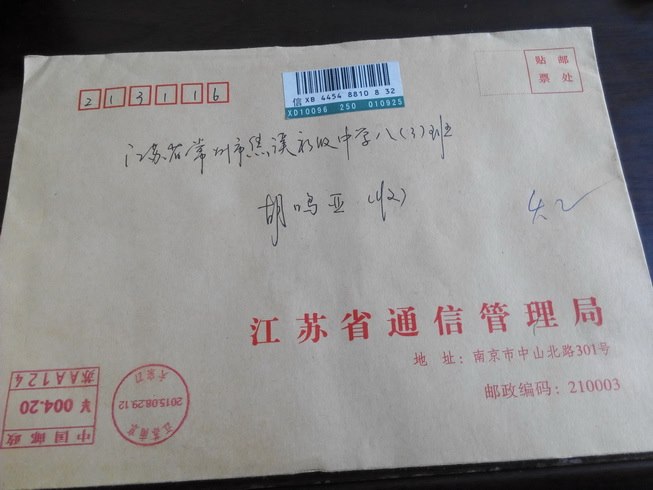 213116
信 XB 4454 8810 8 32
XD10096 250 010925
贴 邮
票 处
江苏省常州市焦溪初级中学八(3)班
胡鸣亚(收)
江苏省通信管理局
地 址：南京市中山北路301号
邮政编码：210003
苏AA124
¥ 004.20
中国邮政
2015.08.29.12
江苏南京